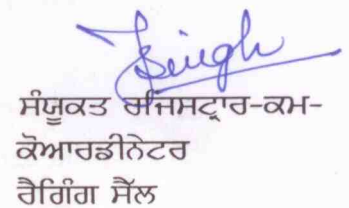 Singh
ਸੰਯੂਕਤ ਰਜਿਸਟ੍ਰਾਰ-ਕਮ-
ਕੋਆਰਡੀਨੇਟਰ
ਰੈਗਿੰਗ ਸੈੱਲ